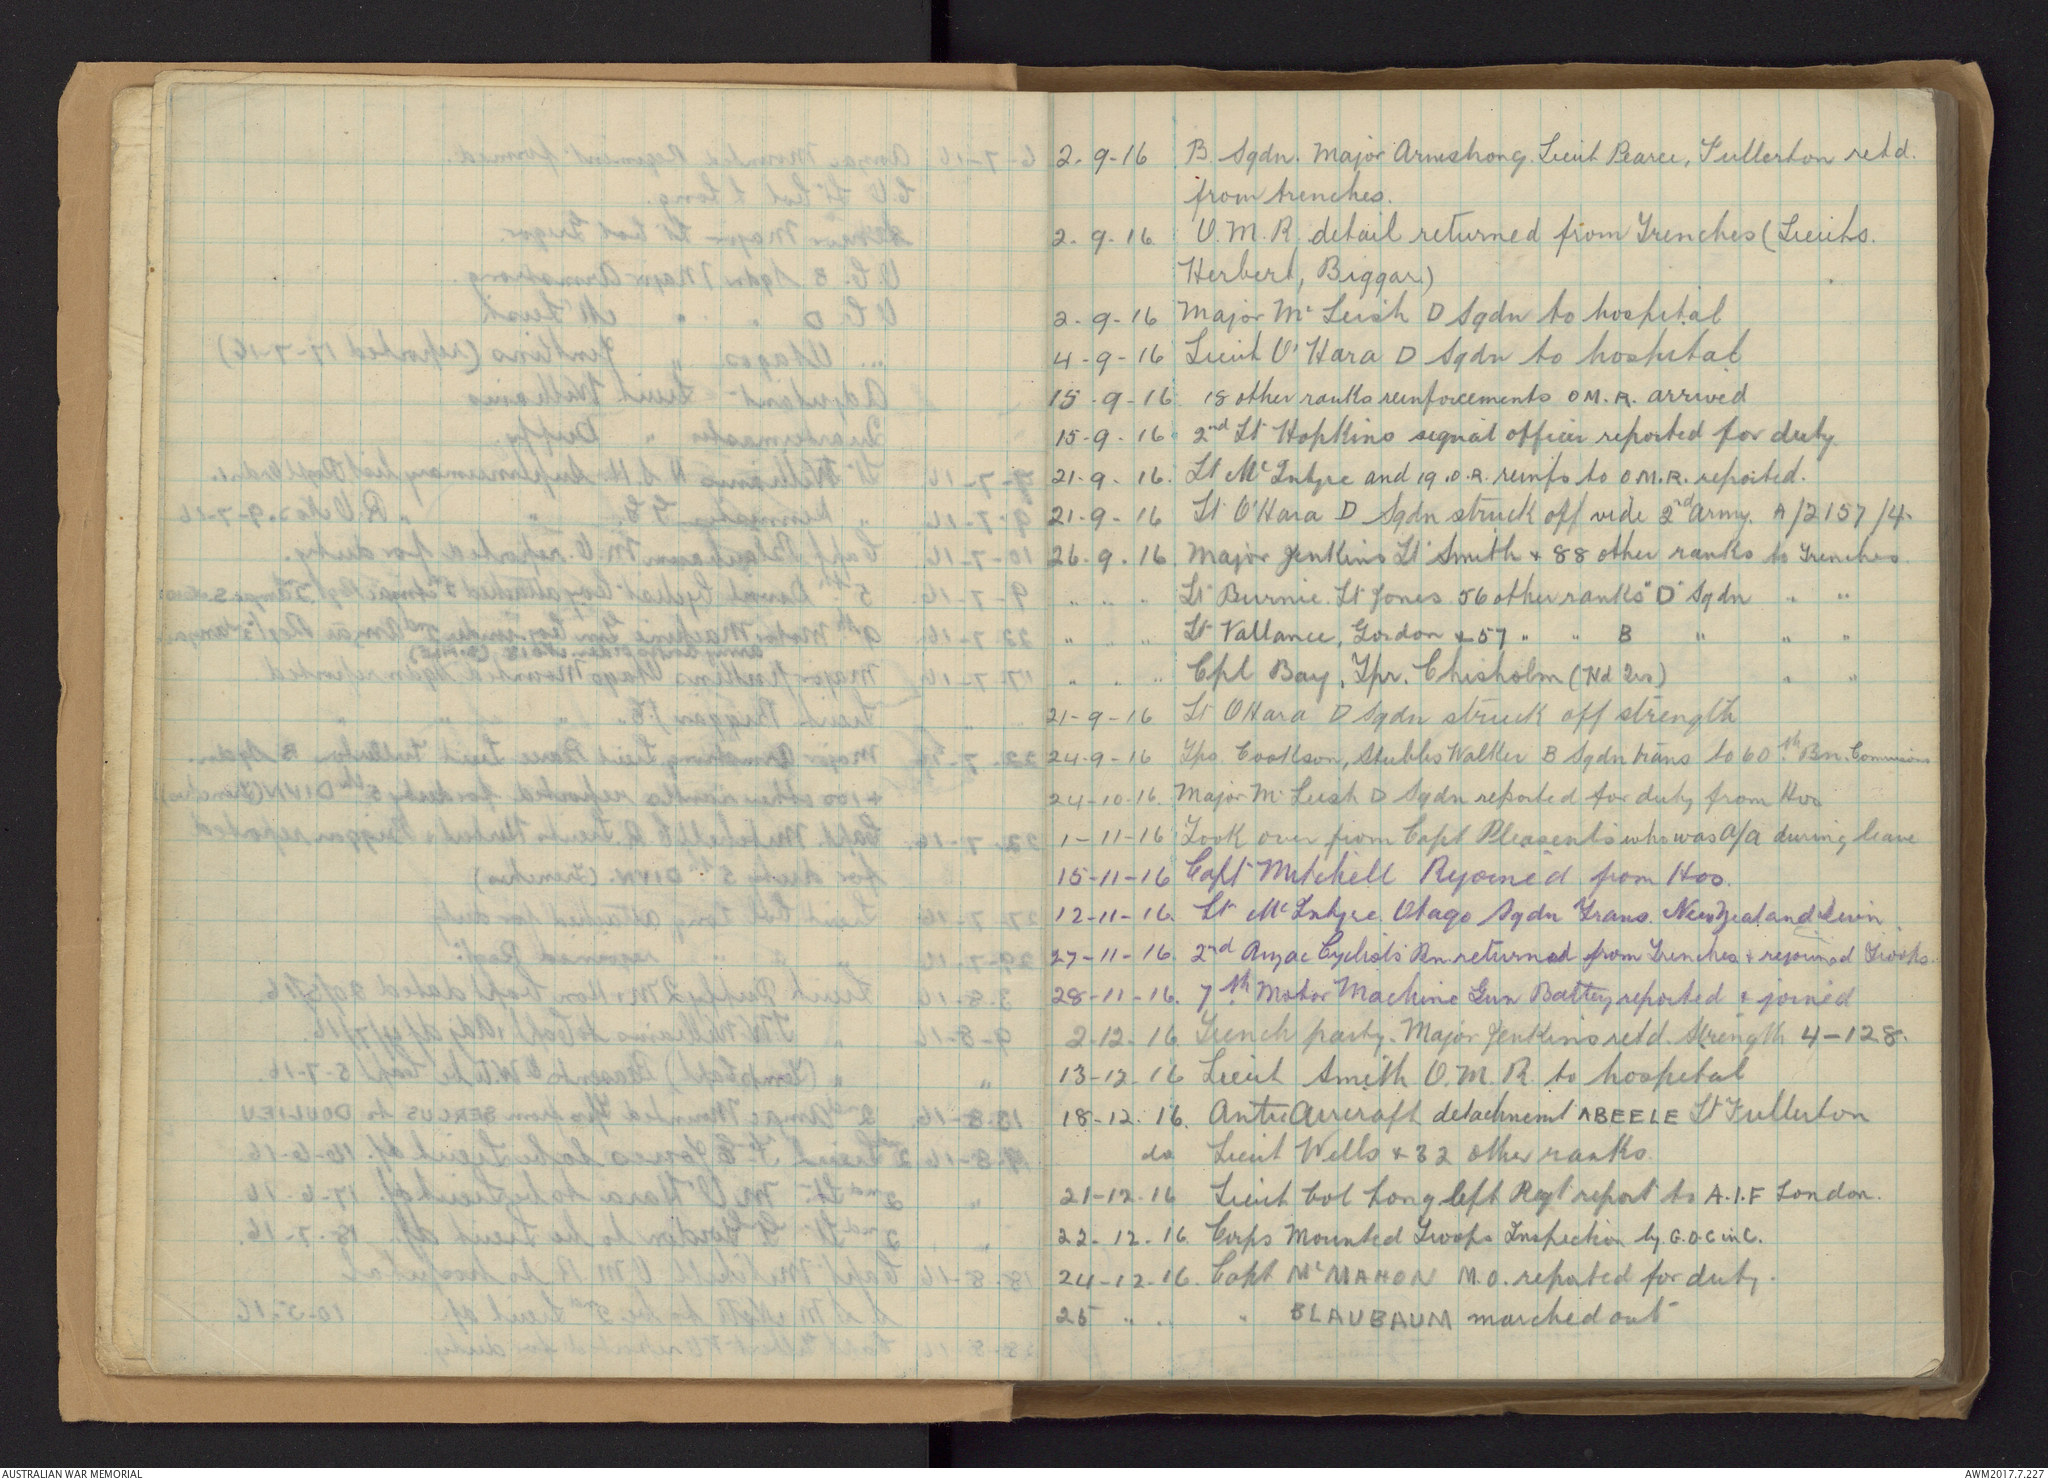 2-9-16 B Sqdn. Major Armstrong. Lieut Pearce, Fullerton retd.
from trenches.
2-9-16 O.M.R. detail returned from Trenches (Lieuts.
Herbert, Biggar)
2-9-16 Major Mc Leish D Sqdn to hospital
4-9-16 Lieut O'Hara D Sqdn to hospital
15-9-16 18 other ranks reinforcements OM.R. arrived
15-9-16 2nd Lt Hopkins signal officer reported for duty
21-9-16. Lt McIntyre and 19.O.R. reinfs to O.M.R. reported.
21-9-16 Lt O'Hara D Sqdn struck off vide 2nd Army. A/2157/4.
26.9.16. Major Jenkins Lt Smith + 88 other ranks to Trenches
" " " Lt Burnie. Lt Jones 56 other ranks "D" Sqdn " "
" " " Lt Vallance, Gordon + 57 " " B " " "
" " " Cpl Bay, Tpr. Chisholm (Hd Qrs) " "
21-9-16 Lt OHara D Sqdn struck off strength
24-9-16 Tps. Cookson, Stubbs Walker B Sqdn trans to 60th Bn. Commissions
24-10-16. Major Mc Leish D Sqdn reported for duty from Hos
1-11-16 Took over from Capt Pleasents who was A/A during leave
15-11-16 Capt Mitchell Rejoined from Hos.
12-11-16. Lt McIntyre. Otago Sqdn Trans. New Zealand
27-11-16. 2nd Anzac Cyclists Bn returned from Trenches + rejoined Troops.
28-11-16. 7th Motor Machine Gun Battery reported + joined
2-12-16. Trench party. Major Jenkins retd. Strength 4-128.
13-12-16 Lieut Smith O.M.R. to hospital
18-12.16. Anti Aircraft detachment ABEELE Lt Fullerton
do Lieut Wells + 32 other ranks.
21-12-16 Lieut Col Long left Regt report to A.I.F London.
22-12-16. Corps Mounted Troops Inspection by G.O.C in C.
24-12-16. Capt McMAHON M.O. reported for duty.
25 " " " BLAUBAUM marched out
AUSTRALIAN WAR MEMORIAL
AWM2017.7.227